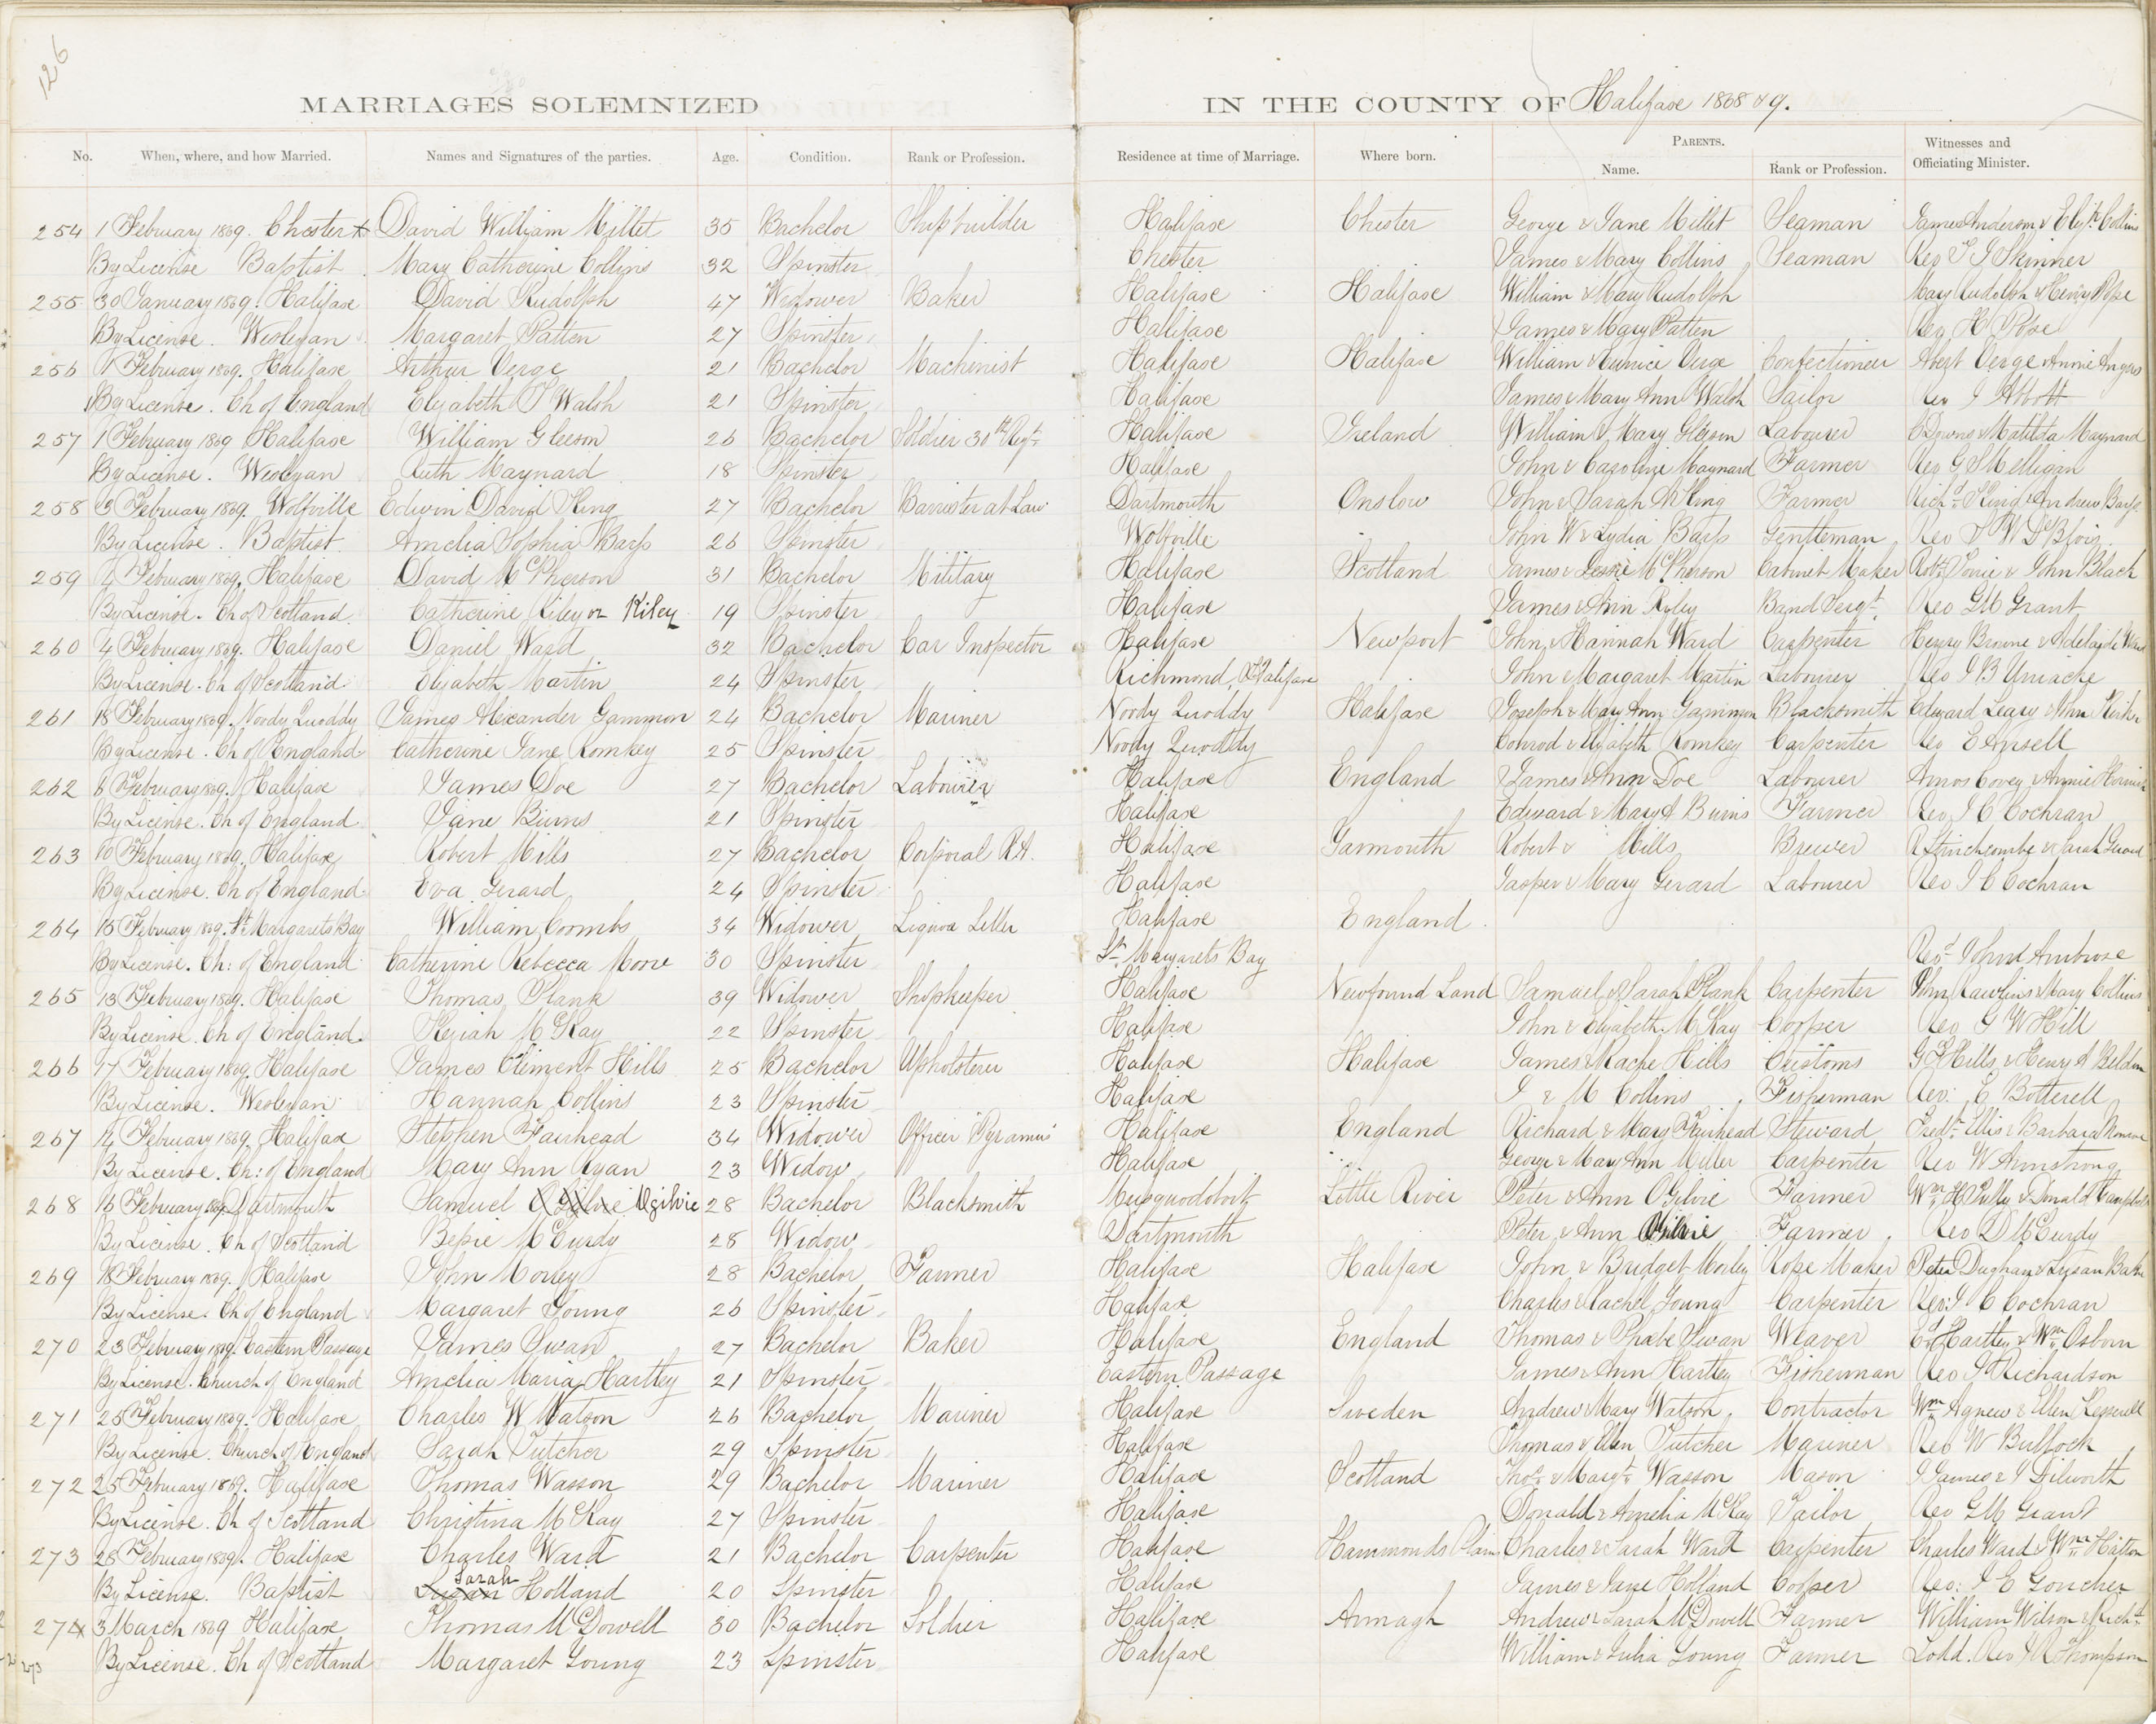 126
MARRIAGES SOLEMNIZED IN THE COUNTY OF Halifax 1868 & 9.
No. When, where, and how Married. Names and Signatures of the parties. Age. Condition. Rank or Profession. Residence at time of Marriage. Where born. PARENTS. Name. Rank or Profession. Witnesses and Officiating Minister.
254 1 February 1869. Chester David William Millet 35 Bachelor Shipbuilder Halifax Chester George & Jane Millet Seaman James Anderson & Eliz. Collins
By License Baptist Mary Catherine Collins 32 Spinster Chester James & Mary Collins Seaman Rev Skinner
255 30 January 1869. Halifax David Rudolph 47 Widower Baker Halifax Halifax William & Mary Rudolph Mary Rudolph & Henry Pope
By License. Wesleyan Margaret Patten 27 Spinster Halifax James & Mary Patten Rev H Pope
256 1 February 1869. Halifax Arthur Verge 21 Bachelor Machinist Halifax Halifax William & Eunice Verge Confectioner Albert Verge & Annie Angus
By License. Ch of England Elizabeth T Walsh 21 Spinster Halifax James & Mary Ann Walsh Tailor Rev J Abbott
257 1 February 1869 Halifax William Gleeson 26 Bachelor Soldier 30th Regt. Halifax Ireland William & Mary Gleeson Labourer C Downs & Matilda Maynard
By License. Wesleyan Ruth Maynard 18 Spinster Halifax John & Caroline Maynard Farmer Rev G S Milligan
258 3 February 1869. Wolfville Edwin David King 27 Bachelor Barrister at Law Dartmouth Onslow John & Sarah A King Farmer Richd. King & Andrew Barss
By License. Baptist Amelia Sophia Barss 26 Spinster Wolfville John W & Lydia Barss Gentleman Rev S W DeBlois
259 4 February 1869. Halifax David McPherson 31 Bachelor Military Halifax Scotland James & Jessie McPherson Cabinet Maker Robt. & John Black
By License. Ch of Scotland. Catherine Riley or Kiley 19 Spinster Halifax James & Ann Ryley Band Sergt. Rev GM Grant
260 4 February 1869. Halifax Daniel Ward 32 Bachelor Car Inspector Halifax Newport John & Hannah Ward Carpenter Henry Browne & Adelaide Ward
By License. Ch of Scotland. Elizabeth Martin 24 Spinster Richmond, Halifax John & Margaret Martin Labourer Rev J B Uniacke
261 18 February 1869. Noody Quoddy James Alexander Gammon 24 Bachelor Mariner Noody Quoddy Halifax Joseph & Mary Ann Gammon Blacksmith Edward Leary & John
By License. Ch of England Catherine Jane Romkey 25 Spinster Noody Quoddy Conrod & Elizabeth Romkey Carpenter Rev E Ansell
262 6 February 1869. Halifax James Doe 27 Bachelor Labourer Halifax England James & Ann Doe Labourer Amos Covey & Annie
By License. Ch of England Jane Burns 21 Spinster Halifax Edward & Mary A Burns Farmer Rev J C Cochran
263 10 February 1869. Halifax Robert Mills 27 Bachelor Corporal R.A. Halifax Yarmouth Robert & Mills Brewer R Stinchcombe & Sarah Gerard
By License. Ch of England Eva Gerard 24 Spinster Halifax Jasper & Mary Gerard Labourer Rev J C Cochran
264 15 February 1869. St Margarets Bay William Coombs 34 Widower Liquor Seller Halifax England
By License. Ch: of England Catherine Rebecca Moore 30 Spinster St. Margarets Bay Revd John Ambrose
265 13 February 1869. Halifax Thomas Plank 39 Widower Shopkeeper Halifax Newfound Land Samuel & Sarah Plank Carpenter John Rawlins & Mary Collins
By License. Ch of England. Keziah McKay 22 Spinster Halifax John & Elizabeth McKay Cooper Rev G W Hill
266 17 February 1869. Halifax James Clement Hills 25 Bachelor Upholsterer Halifax Halifax James & Rache Hills Customs G F Hills & Henry A Beldam
By License. Wesleyan Hannah Collins 23 Spinster Halifax J & M Collins Fisherman Rev. E Botterell
267 14 February 1869. Halifax Stephen Fairhead 34 Widower Officer "Pyramus" Halifax England Richard & Mary Fairhead Steward Fredk. Ellis & Barbara
By License. Ch: of England Mary Ann Ryan 23 Widow Halifax George & Mary Ann Miller Carpenter Rev W Armstrong
268 16 February 1869 Dartmouth Samuel Ogilvie Ogilvie 28 Bachelor Blacksmith Musquodoboit Little River Peter & Ann OGilvie Farmer Wm H Tully & Donald Campbell
By License. Ch of Scotland Bessie McCurdy 28 Widow Dartmouth Peter & Ann Ogilvie Farmer. Rev D McCurdy
269 18 February 1869. Halifax John Morley 28 Bachelor Farmer Halifax Halifax John & Bridget Morley Rope Maker Peter Dughan & Susan Baker
By License. Ch of England Margaret Young 26 Spinster Halifax Charles & Rachel Young Carpenter Rev: J C Cochran
270 23 February 1869. Eastern Passage James Swan 27 Bachelor Baker Halifax England Thomas & Phœbe Swan Weaver Ed Hartley & Wm Osborn
By License. Church of England Amelia Maria Hartley 21 Spinster Eastern Passage James & Ann Hartley Fisherman Rev J Richardson
271 25 February 1869. Halifax Charles W Watson 26 Bachelor Mariner Halifax Sweden Andrew & Mary Watson. Contractor Wm Agnew & Ellen
By License. Church of England Sarah Tutcher 29 Spinster Halifax Thomas & Ellen Tutcher Mariner Rev W Bullock
272 25 February 1869. Halifax Thomas Wasson 29 Bachelor Mariner Halifax Scotland Thos. & Margt. Wasson Mason J James & J Dilworth
By License. Ch of Scotland Christina McKay 27 Spinster Halifax Donald & Amelia McKay Tailor Rev GM Grant
273 28 February 1869. Halifax Charles Ward 21 Bachelor Carpenter Halifax Hammonds Plain Charles & Sarah Ward Carpenter Charles Ward & Wm Hatton
By License. Baptist Susan Sarah Holland 20 Spinster Halifax James & Jane Holland Cooper Rev: J E Goucher
274 3 March 1869 Halifax Thomas McDowell 30 Bachelor Soldier Halifax Armagh Andrew & Sarah McDowell Farmer William Wilson & Richd.
By License. Ch of Scotland Margaret Young 23 Spinster Halifax William & Julia Young Farmer Lodd. Rev J R Thompson